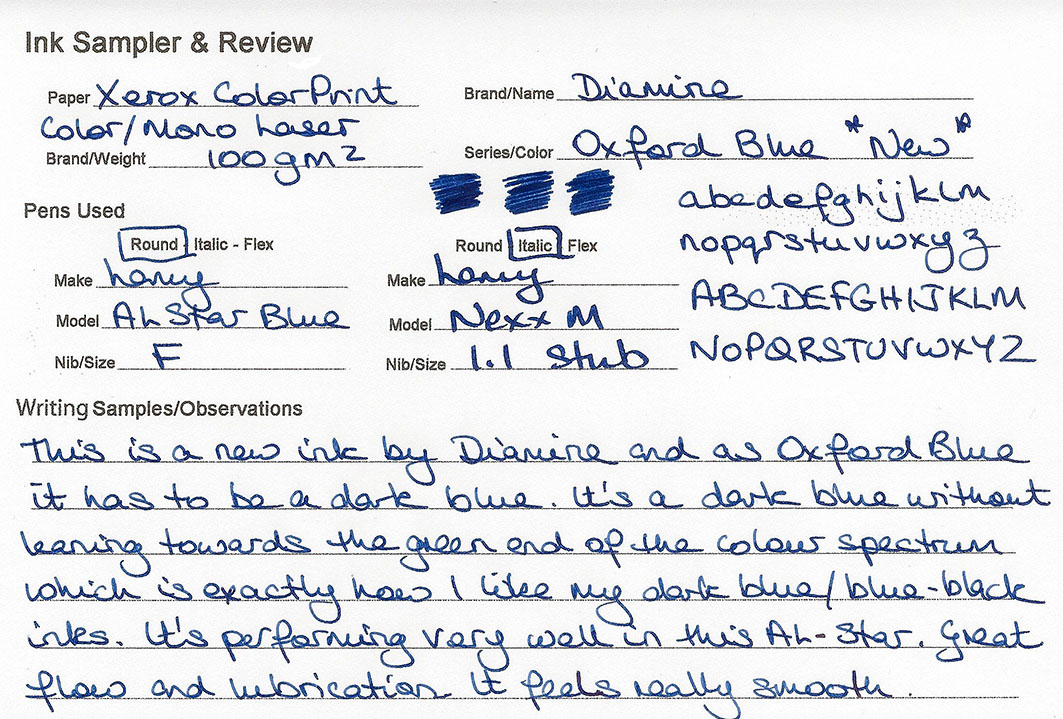 Ink Sampler & Review
Paper Xerox ColorPrint
Brand/Name Diamine
Color/Mono Laser
Brand/Weight 100gm2
Series/Color Oxford Blue *New*
Pens Used
abcdefghijklm
Round - Italic - Flex
Round Italic Flex
nopqrstuvwxyz
Make Lamy
Make Lamy
ABCDEFGHIJKLM
Model AL Star Blue
Model Nexx M
NOPQRSTUVWXYZ
Nib/Size F
Nib/Size 1.1 Stub
Writing Samples/Observations
This is a new ink by Diamine and as Oxford Blue
it has to be a dark blue. It's a dark blue without
leaning towards the green end of the colour spectrum
which is exactly how I like my dark blue/blue-black
inks. It's performing very well in this AL-Star. Great
flow and lubrication. It feels really smooth.